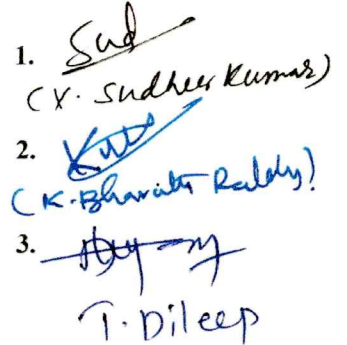 1. Sud
(Y. Sudheer Kumar)
2.
(K. Bharath Reddy)
3.
T. Dileep